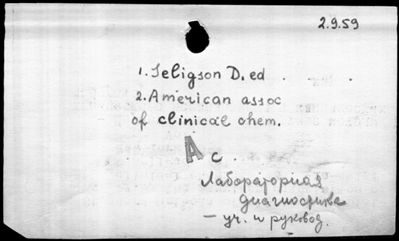 2.9.59
1. Seligson D. ed
2. American assoc
of clinical chem.
A c
Лабораторная
диагностика
— уч. и руковод.